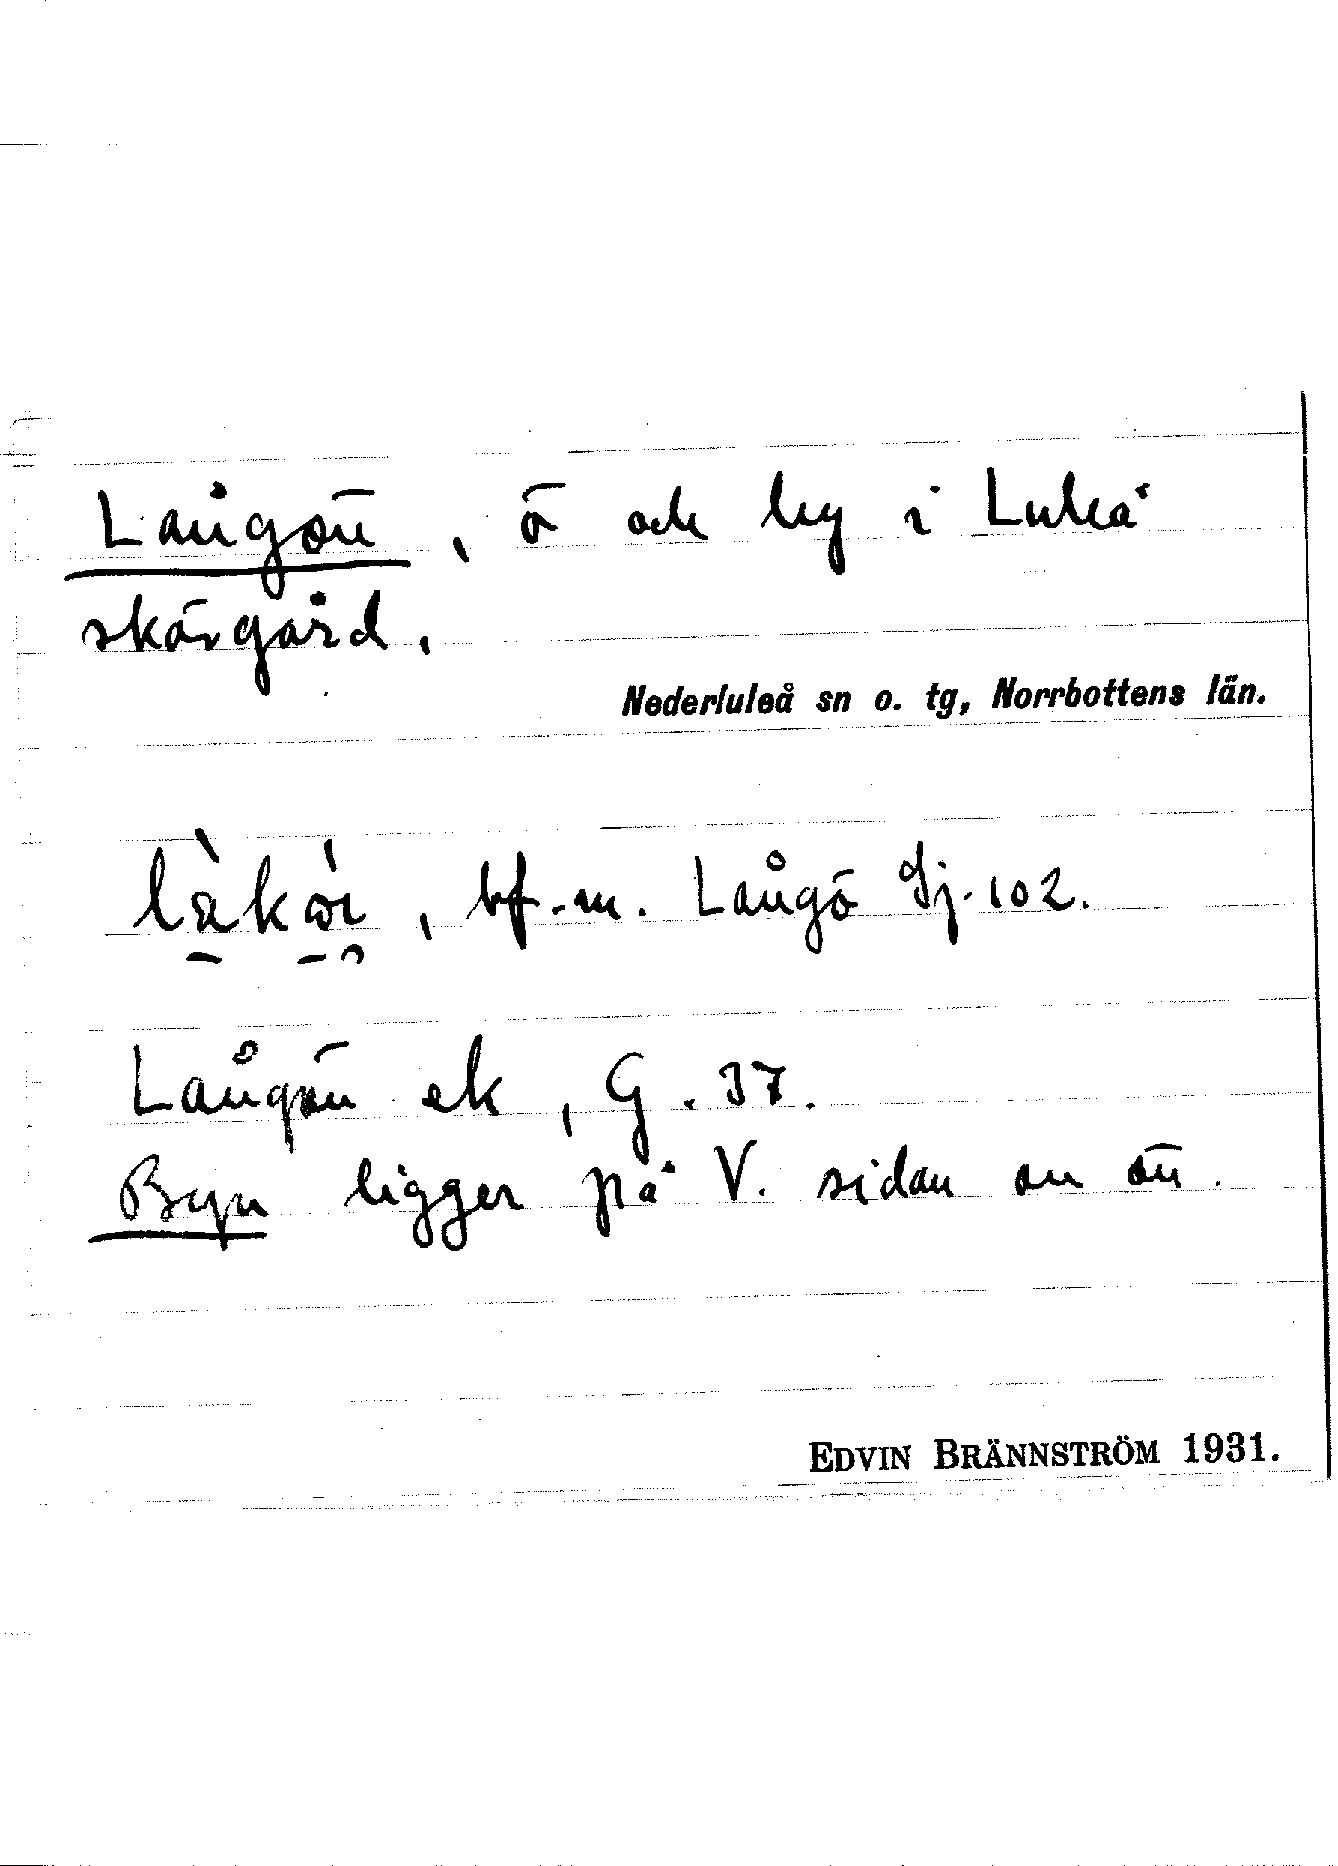 Långön, ö och by i Luleå
skärgård.
Nederluleå sn o. tg, Norrbottens län.
bf.-m. Långö Sj. 102.
Långön ek, G. 37.
Byn ligger på V. sidan av ön.
EDVIN BRÄNNSTRÖM 1931.